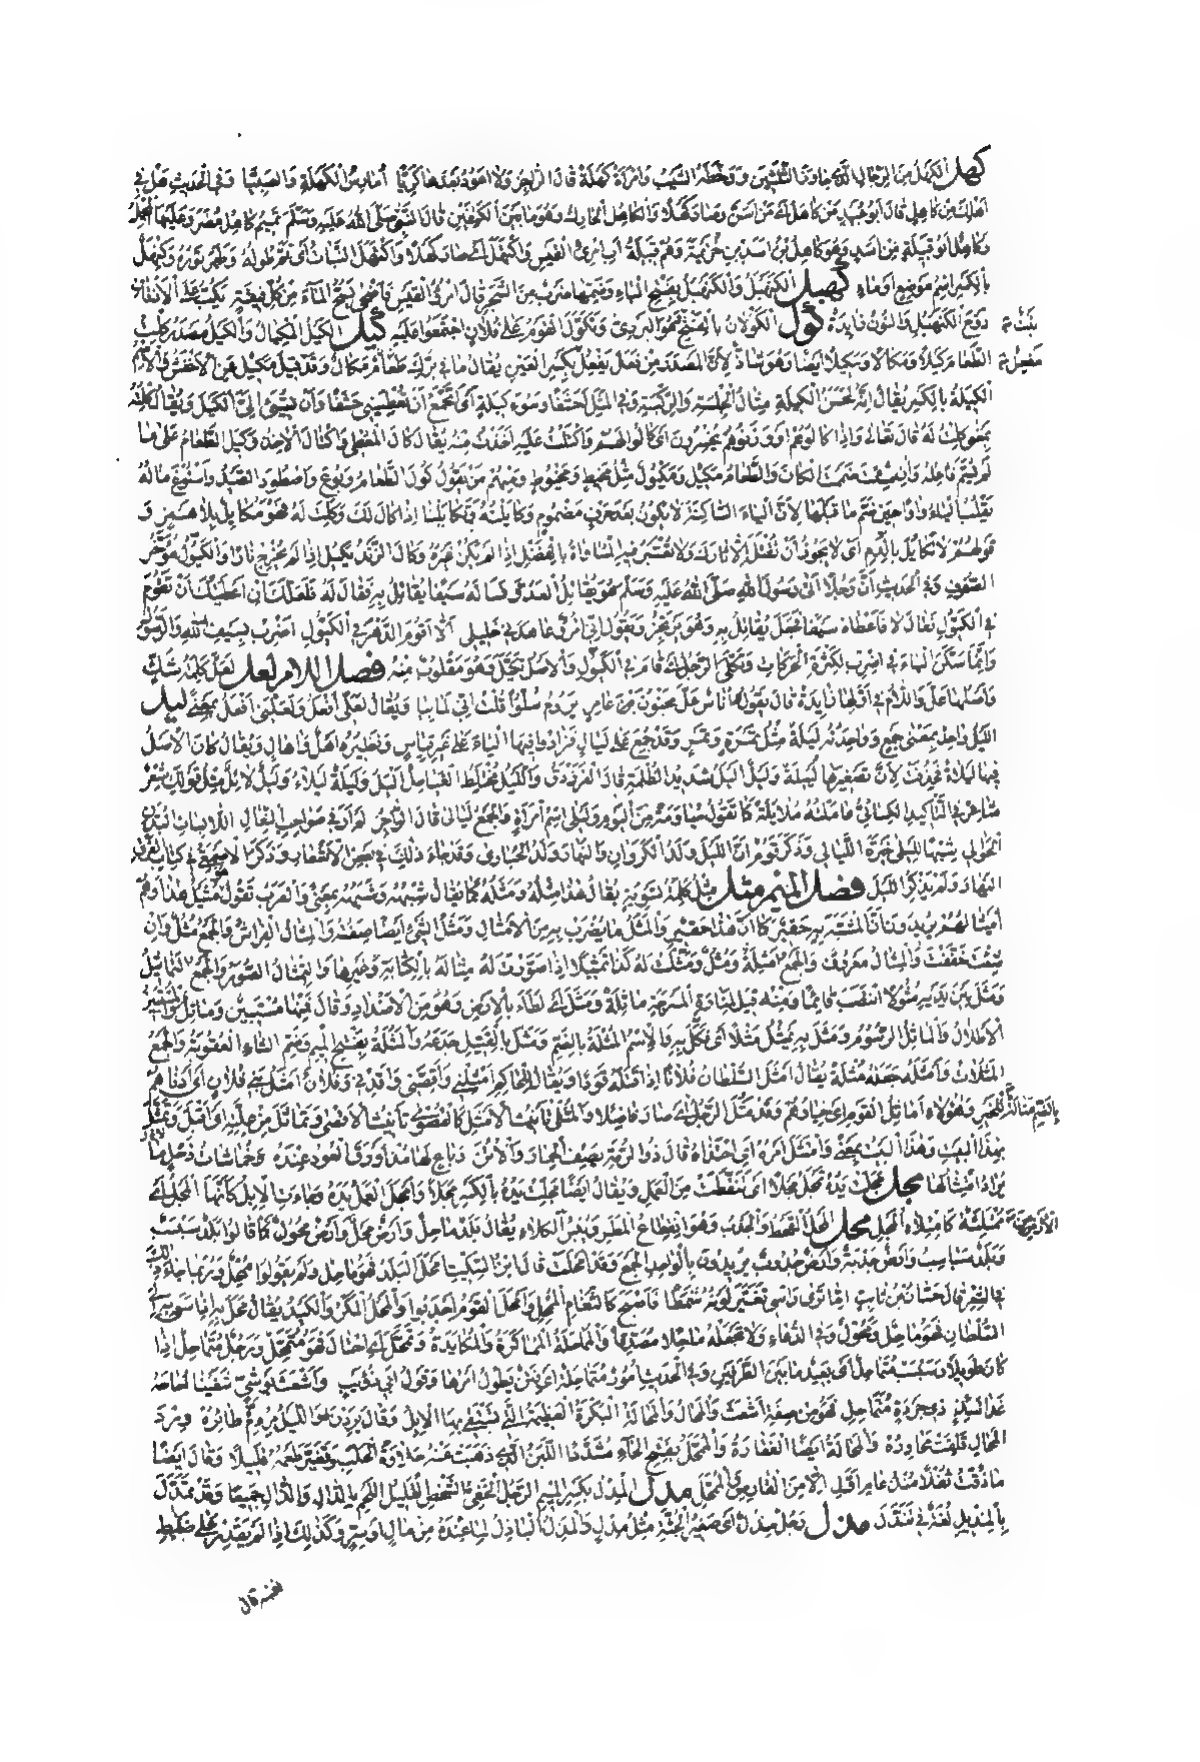 كهل الكَهْلُ مِنَ الرِّجَالِ الَّذِي جَاوَزَ الثَّلَاثِينَ وَوَخَطَهُ الشَّيْبُ وَامْرَأَةٌ كَهْلَةٌ قَالَ الرَّاجِزُ وَلَا أَعُودُ بَعْدَهَا كَرِيًّا أُمَارِسُ الْكَهْلَةَ وَالصَّبِيَّا وَفِي الْحَدِيثِ هَلْ فِي
أَهْلِكَ مِنْ كَاهِلٍ قَالَ أَبُو عُبَيْدٍ مَنْ كَاهَلَ أَيْ مَنْ أَسَنَّ وَصَارَ كَهْلًا وَالْكَاهِلُ الْحَارِكُ وَهُوَ مَا بَيْنَ الْكَتِفَيْنِ قَالَ النَّبِيُّ صَلَّى اللهُ عَلَيْهِ وَسَلَّمَ تَمِيمٌ كَاهِلُ مُضَرَ وَعَلَيْهَا الْمَحْمِلُ
وَكَاهِلٌ أَبُو قَبِيلَةٍ مِنْ أَسَدٍ وَهُوَ كَاهِلُ بْنُ أَسَدِ بْنِ خُزَيْمَةَ وَهُمْ قَتَلَةُ أَبِي امْرِئِ الْقَيْسِ وَاكْتَهَلَ أَيْ صَارَ كَهْلًا وَاكْتَهَلَ النَّبَاتُ أَيْ تَمَّ طُولُهُ وَظَهَرَ نَوْرُهُ وَكِنْهِلُ
بِالْكَسْرِ اسْمُ مَوْضِعٍ أَوْ مَاءٍ كهبل الْكَنَهْبَلُ وَالْكَنَهْبُلُ بِفَتْحِ الْبَاءِ وَضَمِّهَا ضَرْبٌ مِنَ الشَّجَرِ قَالَ امْرُؤُ الْقَيْسِ فَأَضْحَى يَسُحُّ الْمَاءَ مِنْ كُلِّ فِيقَةٍ يَكُبُّ عَلَى الْأَذْقَانِ
دَوْحَ الْكَنَهْبَلِ وَالنُّونُ زَائِدَةٌ كول الْكَوْلَانُ بِالْفَتْحِ نَبْتٌ وَهُوَ الْبَرْدِيُّ وَتَكَوَّلَ الْقَوْمُ عَلَى فُلَانٍ اجْتَمَعُوا عَلَيْهِ كيل الْكَيْلُ الْمِكْيَالُ وَالْكَيْلُ مَصْدَرُ كِلْتُ
الطَّعَامَ كَيْلًا وَمَكَالًا وَمَكِيلًا أَيْضًا وَهُوَ شَاذٌّ لِأَنَّ الْمَصْدَرَ مِنْ فَعَلَ يَفْعِلُ مَفْعِلٌ بِكَسْرِ الْعَيْنِ يُقَالُ مَا فِي بُرِّكَ مَكَالٌ وَقَدْ قِيلَ مَكِيلٌ عَنِ الْأَخْفَشِ
الْكِيلَةُ بِالْكَسْرِ يُقَالُ إِنَّهُ لَحَسَنُ الْكِيلَةِ مِثَالُ الْجِلْسَةِ وَالرِّكْبَةِ وَفِي الْمَثَلِ أَحَشَفًا وَسُوءَ كِيلَةٍ أَيْ أَتَجْمَعُ أَنْ تُعْطِيَنِي حَشَفًا وَأَنْ تُسِيءَ إِلَيَّ الْكَيْلَ وَيُقَالُ كِلْتُهُ
بِمَعْنَى كِلْتُ لَهُ قَالَ تَعَالَى وَإِذَا كَالُوهُمْ أَوْ وَزَنُوهُمْ يُخْسِرُونَ أَيْ كَالُوا لَهُمْ وَاكْتَلْتُ عَلَيْهِ أَخَذْتُ مِنْهُ يُقَالُ كَالَ الْمُعْطِي وَاكْتَالَ الْآخِذُ وَكِيلَ الطَّعَامُ عَلَى مَا
لَمْ يُسَمَّ فَاعِلُهُ وَإِنْ شِئْتَ ضَمَمْتَ الْكَافَ وَالطَّعَامُ مَكِيلٌ وَمَكْيُولٌ مِثْلُ مَخِيطٍ وَمَخْيُوطٍ وَمِنْهُمْ مَنْ يَقُولُ كُولَ الطَّعَامُ وَبُوعَ وَاصْطُودَ الصَّيْدُ وَاسْتُوقَ مَالُهُ
بِقَلْبِ الْيَاءِ وَاوًا حِينَ ضُمَّ مَا قَبْلَهَا لِأَنَّ الْيَاءَ السَّاكِنَةَ لَا تَكُونُ بَعْدَ حَرْفٍ مَضْمُومٍ وَكَايَلْتُهُ وَتَكَايَلْنَا إِذَا كَالَ لَكَ وَكِلْتَ لَهُ فَهُوَ مُكَايِلٌ بِلَا هَمْزٍ وَ
قَوْلُهُمْ لَا تُكَايِلْ بِالدَّمِ أَيْ لَا يَجُوزُ أَنْ تَقْتُلَ إِلَّا ثَأْرَكَ وَلَا تُعْتَبَرُ فِيهِ الْمُسَاوَاةُ بِالْفَضْلِ إِذَا لَمْ يَكُنْ غَيْرُهُ وَكَالَ الزَّنْدُ يَكِيلُ إِذَا لَمْ يُخْرِجْ نَارًا وَالْكَيُّولُ مُؤَخَّرُ
الصُّفُوفِ وَفِي الْحَدِيثِ أَنَّ رَجُلًا أَتَى رَسُولَ اللهِ صَلَّى اللهُ عَلَيْهِ وَسَلَّمَ وَهُوَ يُقَاتِلُ الْعَدُوَّ فَسَأَلَهُ سَيْفًا يُقَاتِلُ بِهِ فَقَالَ لَهُ فَلَعَلَّكَ إِنْ أَعْطَيْتُكَ أَنْ تَقُومَ
فِي الْكَيُّولِ فَقَالَ لَا فَأَعْطَاهُ سَيْفًا فَجَعَلَ يُقَاتِلُ بِهِ وَهُوَ يَرْتَجِزُ وَيَقُولُ إِنِّي امْرُؤٌ عَاهَدَنِي خَلِيلِي أَلَّا أَقُومَ الدَّهْرَ فِي الْكَيُّولِ أَضْرِبْ بِسَيْفِ اللهِ وَالرَّسُولِ
وَإِنَّمَا سَكَّنَ الْبَاءَ فِي أَضْرِبْ لِكَثْرَةِ الْحَرَكَاتِ وَتَكَلَّى الرَّجُلُ أَيْ قَامَ فِي الْكَيُّولِ وَالْأَصْلُ تَكَيَّلَ وَهُوَ مَقْلُوبٌ مِنْهُ فصل اللام لعل لَعَلَّ كَلِمَةُ شَكٍّ
وَأَصْلُهَا عَلَّ وَاللَّامُ فِي أَوَّلِهَا زَائِدَةٌ قَالَ يَقُولُ أُنَاسٌ عَلَّ مَجْنُونَ عَامِرٍ يَرُومُ سُلُوًّا قُلْتُ إِنِّي لِمَا بِيَا وَيُقَالُ لَعَلِّي أَفْعَلُ وَلَعَلَّنِي أَفْعَلُ بِمَعْنًى ليل
اللَّيْلُ وَاحِدٌ بِمَعْنَى جَمْعٍ وَوَاحِدَتُهُ لَيْلَةٌ مِثْلُ تَمْرَةٍ وَتَمْرٍ وَقَدْ جُمِعَ عَلَى لَيَالٍ فَزَادُوا فِيهَا الْيَاءَ عَلَى غَيْرِ قِيَاسٍ وَنَظِيرُهُ أَهْلٌ وَأَهَالٍ وَيُقَالُ كَانَ الْأَصْلُ
فِيهَا لَيْلَاةٌ فَحُذِفَتْ لِأَنَّ تَصْغِيرَهَا لُيَيْلِيَةٌ وَلَيْلٌ أَلْيَلُ شَدِيدُ الظُّلْمَةِ قَالَ الْفَرَزْدَقُ وَاللَّيْلُ مُخْتَلِطُ الْغَيَاطِلِ أَلْيَلُ وَلَيْلَةٌ لَيْلَاءُ وَلَيْلٌ لَائِلٌ مِثْلُ قَوْلِكَ شِعْرٌ
شَاعِرٌ فِي التَّأْكِيدِ الْكِسَائِيُّ عَامَلْتُهُ مُلَايَلَةً كَمَا تَقُولُ مُيَاوَمَةً مِنَ الْيَوْمِ وَلَيْلَى اسْمُ امْرَأَةٍ وَالْجَمْعُ لَيَالِي قَالَ الرَّاجِزُ لَمْ أَرَ فِي صَوَاحِبِ النِّعَالِ اللَّابِسَاتِ الْبُدَّنِ
الْحَوَالِي شِبْهًا لِلَيْلَى خِيرَةِ اللَّيَالِي وَذَكَرَ قَوْمٌ أَنَّ اللَّيْلَ وَلَدُ الْكَرَوَانِ وَالنَّهَارَ وَلَدُ الْحُبَارَى وَقَدْ جَاءَ ذَلِكَ فِي بَعْضِ الْأَشْعَارِ وَذَكَرَ الْأَصْمَعِيُّ فِي كِتَابِ الْفَرْقِ
النَّهَارَ وَلَمْ يَذْكُرِ اللَّيْلَ فصل الميم مثل مِثْلُ كَلِمَةُ تَسْوِيَةٍ يُقَالُ هَذَا مِثْلُهُ وَمَثَلُهُ كَمَا يُقَالُ شِبْهُهُ وَشَبَهُهُ بِمَعْنًى وَالْعَرَبُ تَقُولُ هُوَ مُثَيْلُ هَذَا وَهُمْ
أُمَيْثَالُهُمْ يُرِيدُونَ أَنَّ الْمُشَبَّهَ بِهِ حَقِيرٌ كَمَا أَنَّ هَذَا حَقِيرٌ وَالْمَثَلُ مَا يُضْرَبُ بِهِ مِنَ الْأَمْثَالِ وَمَثَلُ الشَّيْءِ أَيْضًا صِفَتُهُ وَالْمِثَالُ الْفِرَاشُ وَالْجَمْعُ مُثُلٌ وَإِنْ
شِئْتَ خَفَّفْتَ وَالْمِثَالُ مَعْرُوفٌ وَالْجَمْعُ أَمْثِلَةٌ وَمُثُلٌ وَمَثَّلْتُ لَهُ كَذَا تَمْثِيلًا إِذَا صَوَّرْتَ لَهُ مِثَالَهُ بِالْكِتَابَةِ وَغَيْرِهَا وَالتِّمْثَالُ الصُّورَةُ وَالْجَمْعُ التَّمَاثِيلُ
وَمَثَلَ بَيْنَ يَدَيْهِ مُثُولًا انْتَصَبَ قَائِمًا وَمِنْهُ قِيلَ لِمَنَارَةِ الْمَسْرَجَةِ مَاثِلَةٌ وَمَثَلَ أَيْ لَطَأَ بِالْأَرْضِ وَهُوَ مِنَ الْأَضْدَادِ وَقَالَ فَمِنْهَا مُسْتَبِينٌ وَمَاثِلُ
الْأَطْلَالُ وَالْمَاثِلُ الرُّسُومُ وَمَثَلَ بِهِ يَمْثُلُ مَثْلًا أَيْ نَكَّلَ بِهِ وَالْاِسْمُ الْمُثْلَةُ بِالضَّمِّ وَمَثَلَ بِالْقَتِيلِ جَدَعَهُ وَالْمَثُلَةُ بِفَتْحِ الْمِيمِ وَضَمِّ الثَّاءِ الْعُقُوبَةُ وَالْجَمْعُ
الْمَثُلَاتُ وَأَمْثَلَهُ جَعَلَهُ مُثْلَةً يُقَالُ أَمْثَلَ السُّلْطَانُ فُلَانًا إِذَا قَتَلَهُ قَوَدًا وَيُقَالُ لِلْحَاكِمِ أَمْثِلْنِي وَأَقِصَّنِي وَأَقِدْنِي وَفُلَانٌ أَمْثَلُ بَنِي فُلَانٍ أَيْ أَدْنَاهُمْ
لِلْخَيْرِ وَهَؤُلَاءِ أَمَاثِلُ الْقَوْمِ أَيْ خِيَارُهُمْ وَقَدْ مَثُلَ الرَّجُلُ أَيْ صَارَ فَاضِلًا وَالْمُثْلَى تَأْنِيثُ الْأَمْثَلِ كَالْقُصْوَى تَأْنِيثُ الْأَقْصَى وَتَمَاثَلَ مِنْ عِلَّتِهِ أَيْ أَقْبَلَ وَتَمَثَّلَ
بِهَذَا الْبَيْتِ وَهَذَا الْبَيْتَ بِمَعْنًى وَامْتَثَلَ أَمْرَهُ أَيْ احْتَذَاهُ قَالَ ذُو الرُّمَّةِ يَصِفُ الْحِمَارَ وَالْأُتُنَ رَبَاعٍ لَهَا مُذْ أَوْرَقَ الْعُودُ عِنْدَهُ خُمَاشَاتُ ذَحْلٍ مَا
يُرَادُ امْتِثَالُهَا مجل مَجِلَتْ يَدُهُ تَمْجَلُ مَجَلًا أَيْ تَنَفَّطَتْ مِنَ الْعَمَلِ وَيُقَالُ أَيْضًا مَجِلَتْ يَدُهُ بِالْكَسْرِ مَجَلًا وَأَمْجَلَ الْعَمَلُ يَدَهُ وَجَاءَتِ الْإِبِلُ كَأَنَّهَا الْمَجْلُ أَيْ
مُمْتَلِئَةً كَامْتِلَاءِ الْمَجْلِ محل الْمَحْلُ الْقَحْطُ وَالْجَدْبُ وَهُوَ انْقِطَاعُ الْمَطَرِ وَيُبْسُ الْكَلَاءِ يُقَالُ بَلَدٌ مَاحِلٌ وَأَرْضٌ مَحْلٌ وَأَرْضٌ مُحُولٌ كَمَا قَالُوا بَلَدٌ سَبْسَبٌ
وَبَلَدٌ سَبَاسِبُ وَأَرْضٌ جَدْبَةٌ وَأَرْضٌ جُدُوبٌ يُرِيدُونَ بِالْوَاحِدِ الْجَمْعَ وَقَدْ أَمْحَلَتْ قَالَ ابْنُ السِّكِّيتِ أَمْحَلَ الْبَلَدُ فَهُوَ مَاحِلٌ وَلَمْ يَقُولُوا مُمْحِلٌ وَرُبَّمَا جَاءَ
فِي الشِّعْرِ قَالَ حَسَّانُ بْنُ ثَابِتٍ إِمَّا تَرَيْ رَأْسِي تَغَيَّرَ لَوْنُهُ شَمَطًا فَأَصْبَحَ كَالثَّغَامِ الْمُمْحِلِ وَأَمْحَلَ الْقَوْمُ أَجْدَبُوا وَالْمَحْلُ الْمَكْرُ وَالْكَيْدُ يُقَالُ مَحَلَ بِهِ إِذَا سَعَى بِهِ إِلَى
السُّلْطَانِ فَهُوَ مَاحِلٌ وَمَحُولٌ وَفِي الدُّعَاءِ وَلَا تَجْعَلْهُ مَاحِلًا مُصَدَّقًا وَالْمُمَاحَلَةُ الْمُمَاكَرَةُ وَالْمُكَايَدَةُ وَتَمَحَّلَ أَيْ احْتَالَ فَهُوَ مُتَمَحِّلٌ وَرَجُلٌ مُتَمَاحِلٌ إِذَا
كَانَ طَوِيلًا وَسَبْسَبٌ مُتَمَاحِلٌ أَيْ بَعِيدُ مَا بَيْنَ الطَّرَفَيْنِ وَفِي الْحَدِيثِ أُمُورٌ مُتَمَاحِلَةٌ أَيْ فِتَنٌ يَطُولُ أَمْرُهَا وَقَوْلُ أَبِي ذُؤَيْبٍ وَأَشْعَثَ بَوْشِيٍّ شَفَيْنَا أُحَاحَهُ
غَدَاتَئِذٍ ذِي جَرْدَةٍ مُتَمَاحِلِ فَهُوَ مِنْ صِفَةِ أَشْعَثَ وَالْمَحَالُ وَالْمَحَالَةُ الْبَكْرَةُ الْعَظِيمَةُ الَّتِي تَسْتَقِي بِهَا الْإِبِلُ وَقَالَ يَرِدْنَ وَاللَّيْلُ مُرِمٌّ طَائِرُهْ وِرْدَ
الْمَحَالِ قَلِقَتْ مَحَاوِرُهْ وَالْمَحَالَةُ أَيْضًا الْفَقَارَةُ وَالْمُمَحَّلُ بِفَتْحِ الْحَاءِ مُشَدَّدًا اللَّبَنُ الَّذِي ذَهَبَتْ عَنْهُ حَلَاوَةُ الْحَلَبِ وَتَغَيَّرَ طَعْمُهُ قَلِيلًا وَقَالَ أَيْضًا
مَا ذُقْتُ ثُفْلًا مُنْذُ عَامٍ أَوَّلِ إِلَّا مِنَ الْقَارِصِ وَالْمُمَحَّلِ مدل الْمِدْلُ بِكَسْرِ الْمِيمِ الرَّجُلُ الْخَفِيُّ الشَّخْصِ الْقَلِيلُ اللَّحْمِ بِالدَّالِ وَالذَّالِ جَمِيعًا وَقَدْ تَمَدَّلَ
بِالْمِنْدِيلِ لُغَةٌ فِي تَنَدَّلَ مذل رَجُلٌ مِذْلٌ أَيْ صَغِيرُ الْجُثَّةِ مِثْلُ مِدْلٍ وَالْمَذِلُ الْبَاذِلُ لِمَا عِنْدَهُ مِنْ مَالٍ أَوْ سِرٍّ وَكَذَلِكَ إِذَا لَمْ يَقْدِرْ عَلَى ضَبْطِ
نفسه قال